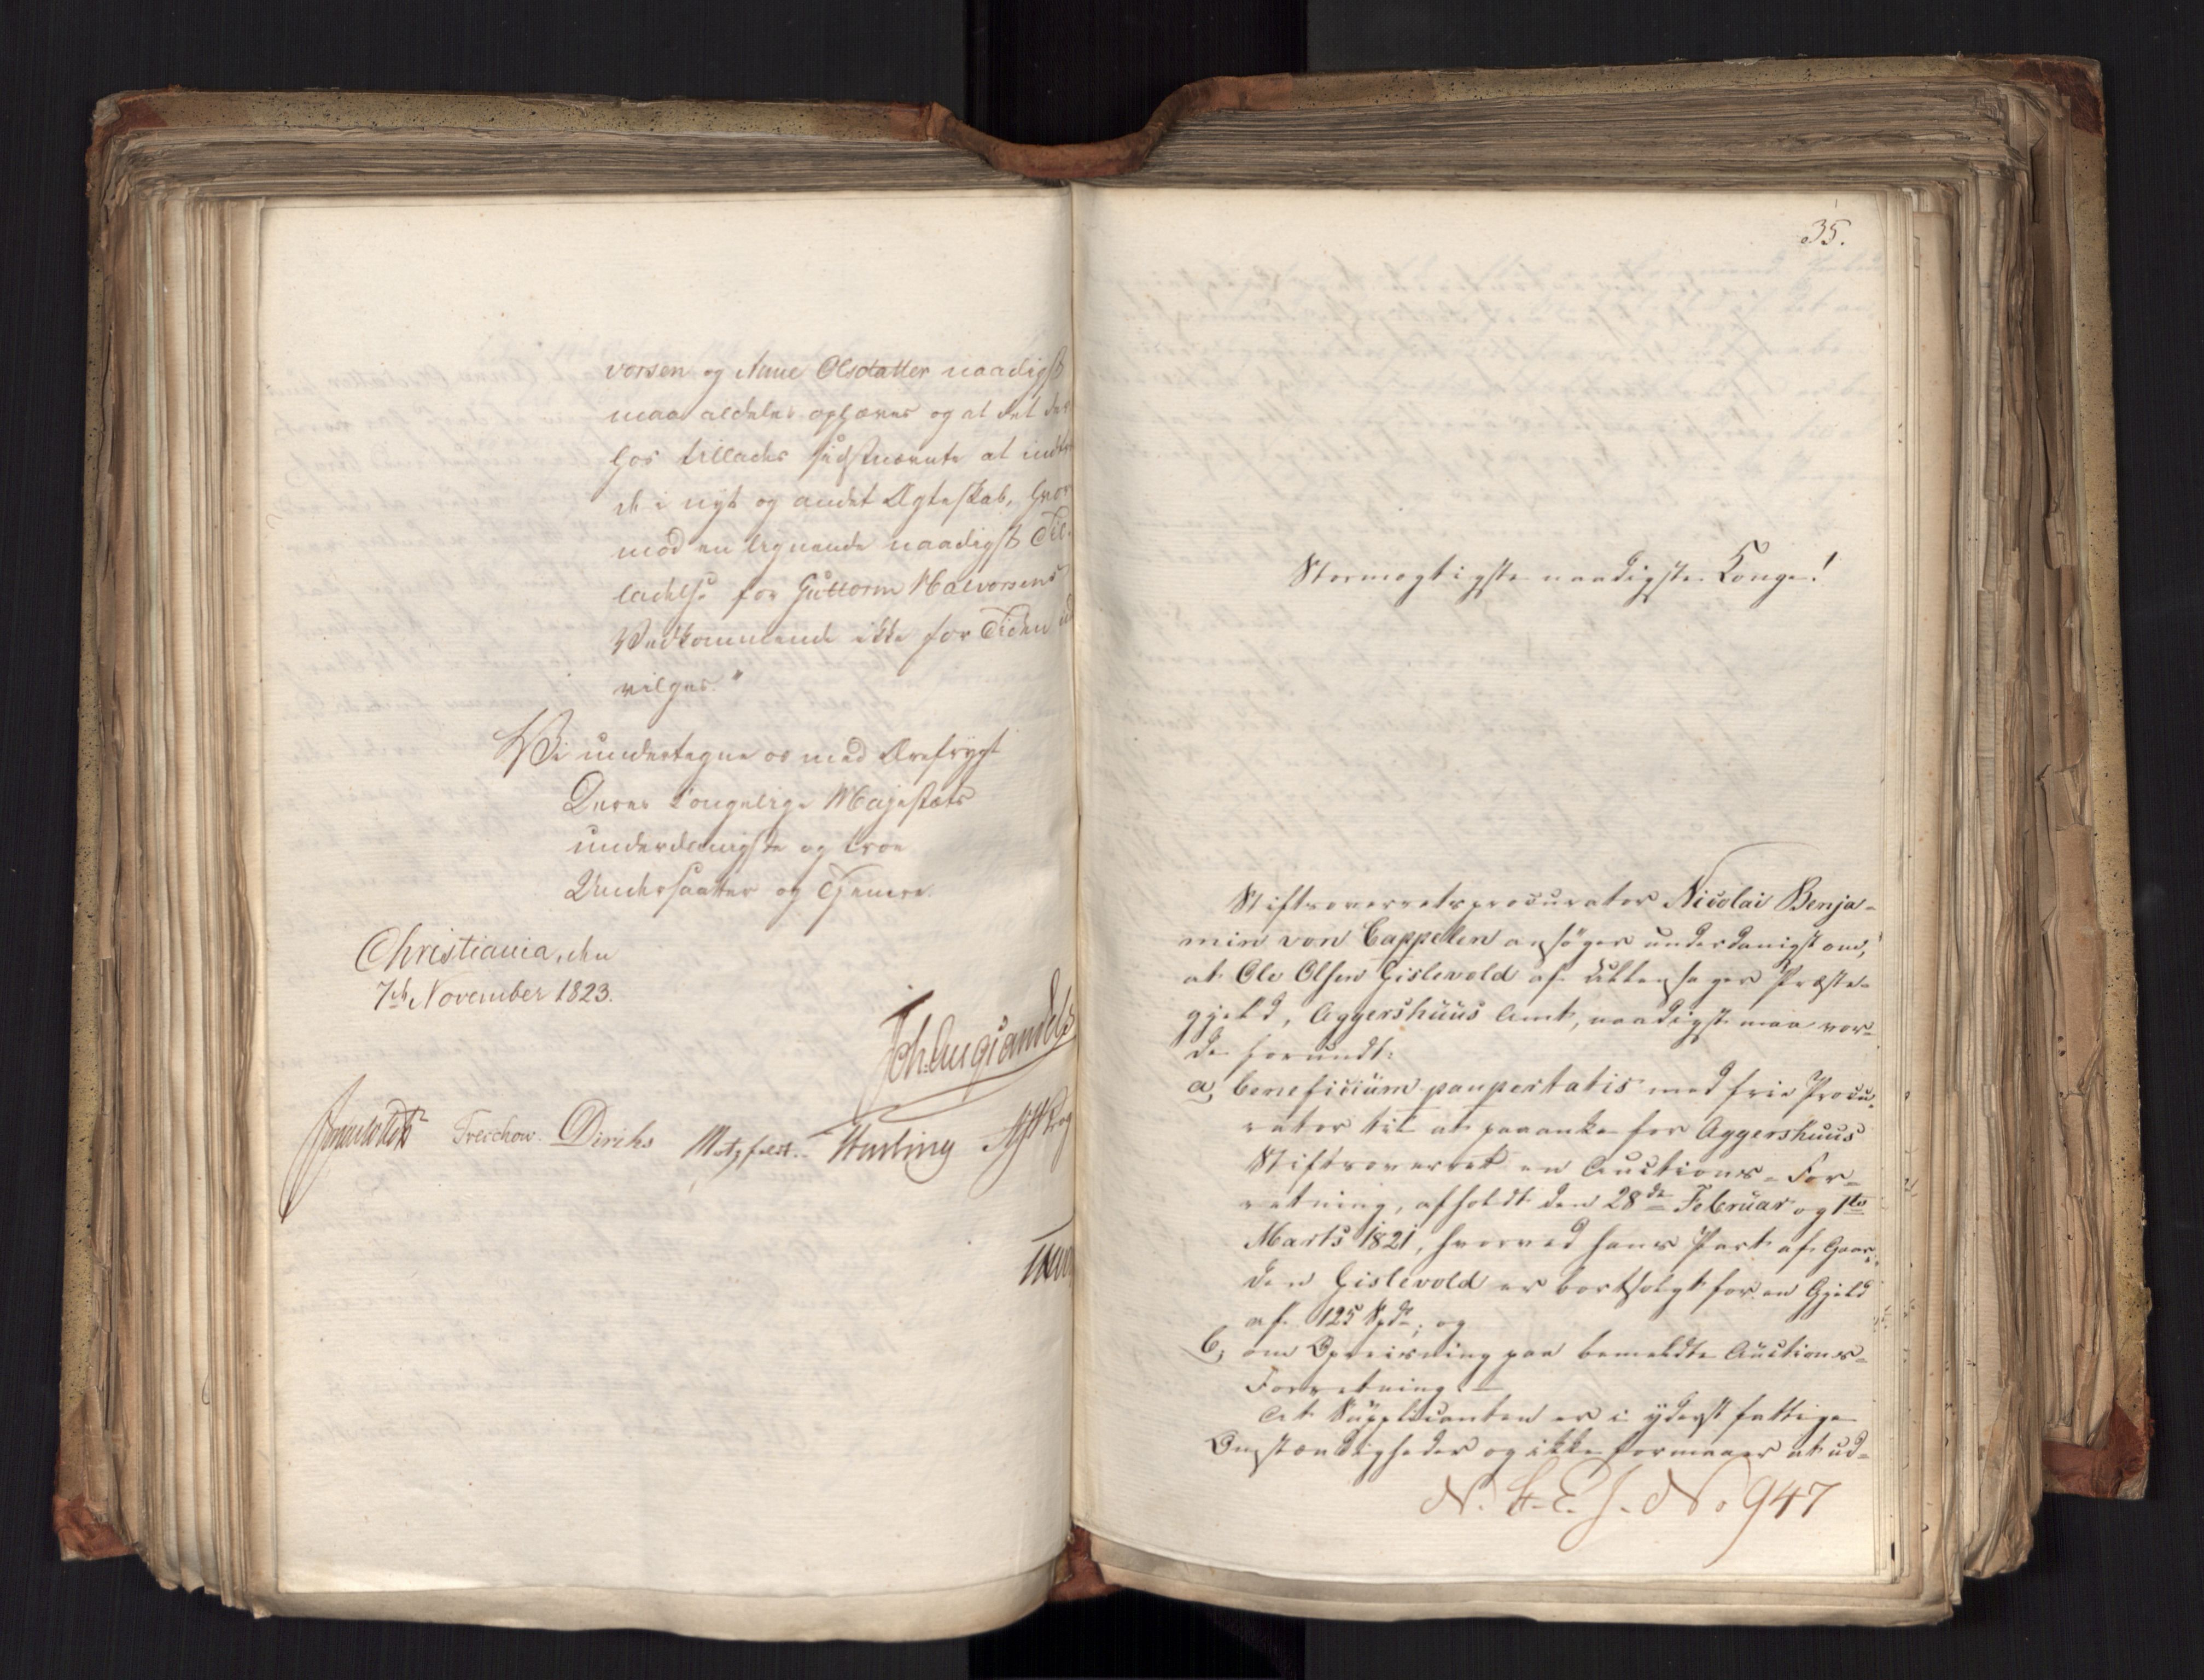 vorsen og Anne Olsdatter naadigst
maa aldeles ophæves og at det der
hos tillades sidstnævnte at indtræ
de i nyt og andet Ægteskab, hvor
mod en lignende naadigst Til-
ladelse for Guttorm Halvorsens
Vedkommende ikke for Tiden ind
vilges."
Vi undertegne os med Ærefrygt
Deres Kongelige Majestæts
underdanigste og troe
Undersaatter og Tjenere.
Christiania, den
7de November 1823.
Joh. Aug. Sandels
Sommerhielm Treschow. Diriks Motzfeldt. Hasting Krog
35.
Stormægtigste naadigste Konge!
Stiftsoverretsprocurator Nicolai Benja-
min von Cappelen ansøger underdanigst om,
at Ole Olsen Gislevold af Præste-
gjeld, Aggershuus Amt, naadigst maa vor-
de forundt:
a, beneficium paupertatis med frie Procu-
rator til at paaanke for Aggershuus
Stiftsoverret en Auctions-For-
retning, afholdt den 28de Februar og 1ste
Marts 1821, hvorved hans Part af Gaar-
den Gislevold er bortsolgt for en Gjeld
af 125 Spdr; og
b, om Opreisning paa bemeldte Auctions-
Forretning. —
At Supplicanten er i yderst fattige
Omstændigheder og ikke formaaer at ud-
N. C. E. J. No 947